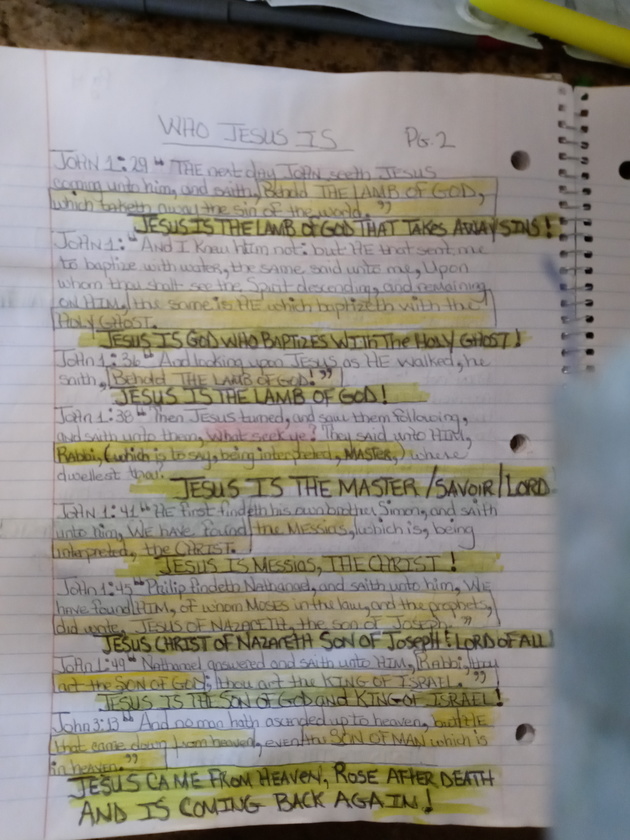 WHO JESUS IS PG. 2
JOHN 1:29 "THE next day JOHN seeth JESUS
coming unto him, and saith, Behold THE LAMB OF GOD,
which taketh away the sin of the world."
JESUS IS THE LAMB of GOD THAT TAKES AWAY SINS!
JOHN 1: "And I knew him not: but HE that sent me
to baptize with water, the same said unto me, Upon
whom thou shalt see the Spirit descending, and remaining
ON HIM, the same is HE which baptizeth with the
HOLY GHOST.
JESUS IS GOD WHO BAPTIZES WITH THE HOLY GHOST!
JOHN 1:36 "And looking upon JESUS as HE walked, he
saith, Behold THE LAMB OF GOD!"
JESUS IS THE LAMB OF GOD!
JOHN 1:38 "Then JESUS turned, and saw them following,
and saith unto them, What seek ye? They said unto HIM,
Rabbi, (which is to say, being interpreted, MASTER,) where
dwellest
JESUS IS THE MASTER/SAVOIR/LORD
JOHN 1:41 "HE first findeth his own brother Simon, and saith
unto him, WE HAVE found the MESSIAS, which is, being
interpreted, the CHRIST.
JESUS IS MESSIAS, THE CHRIST!
JOHN 1:45 "Philip findeth Nathanael, and saith unto him, WE
have found HIM, of whom MOSES in the law, and the prophets,
did write, JESUS OF NAZARETH, the son of Joseph."
JESUS CHRIST OF NAZARETH SON OF JOSEPH! LORD OF ALL!
JOHN 1:49 "Nathanael answered and saith unto HIM, Rabbi, thou
art the SON OF GOD; thou art the KING OF ISRAEL."
JESUS IS THE SON OF GOD and KING OF ISRAEL!
John 3:13 "And no man hath ascended up to heaven, but HE
that came down from heaven, even the SON OF MAN which is
in heaven."
JESUS CAME FROM HEAVEN, ROSE AFTER DEATH
AND IS COMING BACK AGAIN!